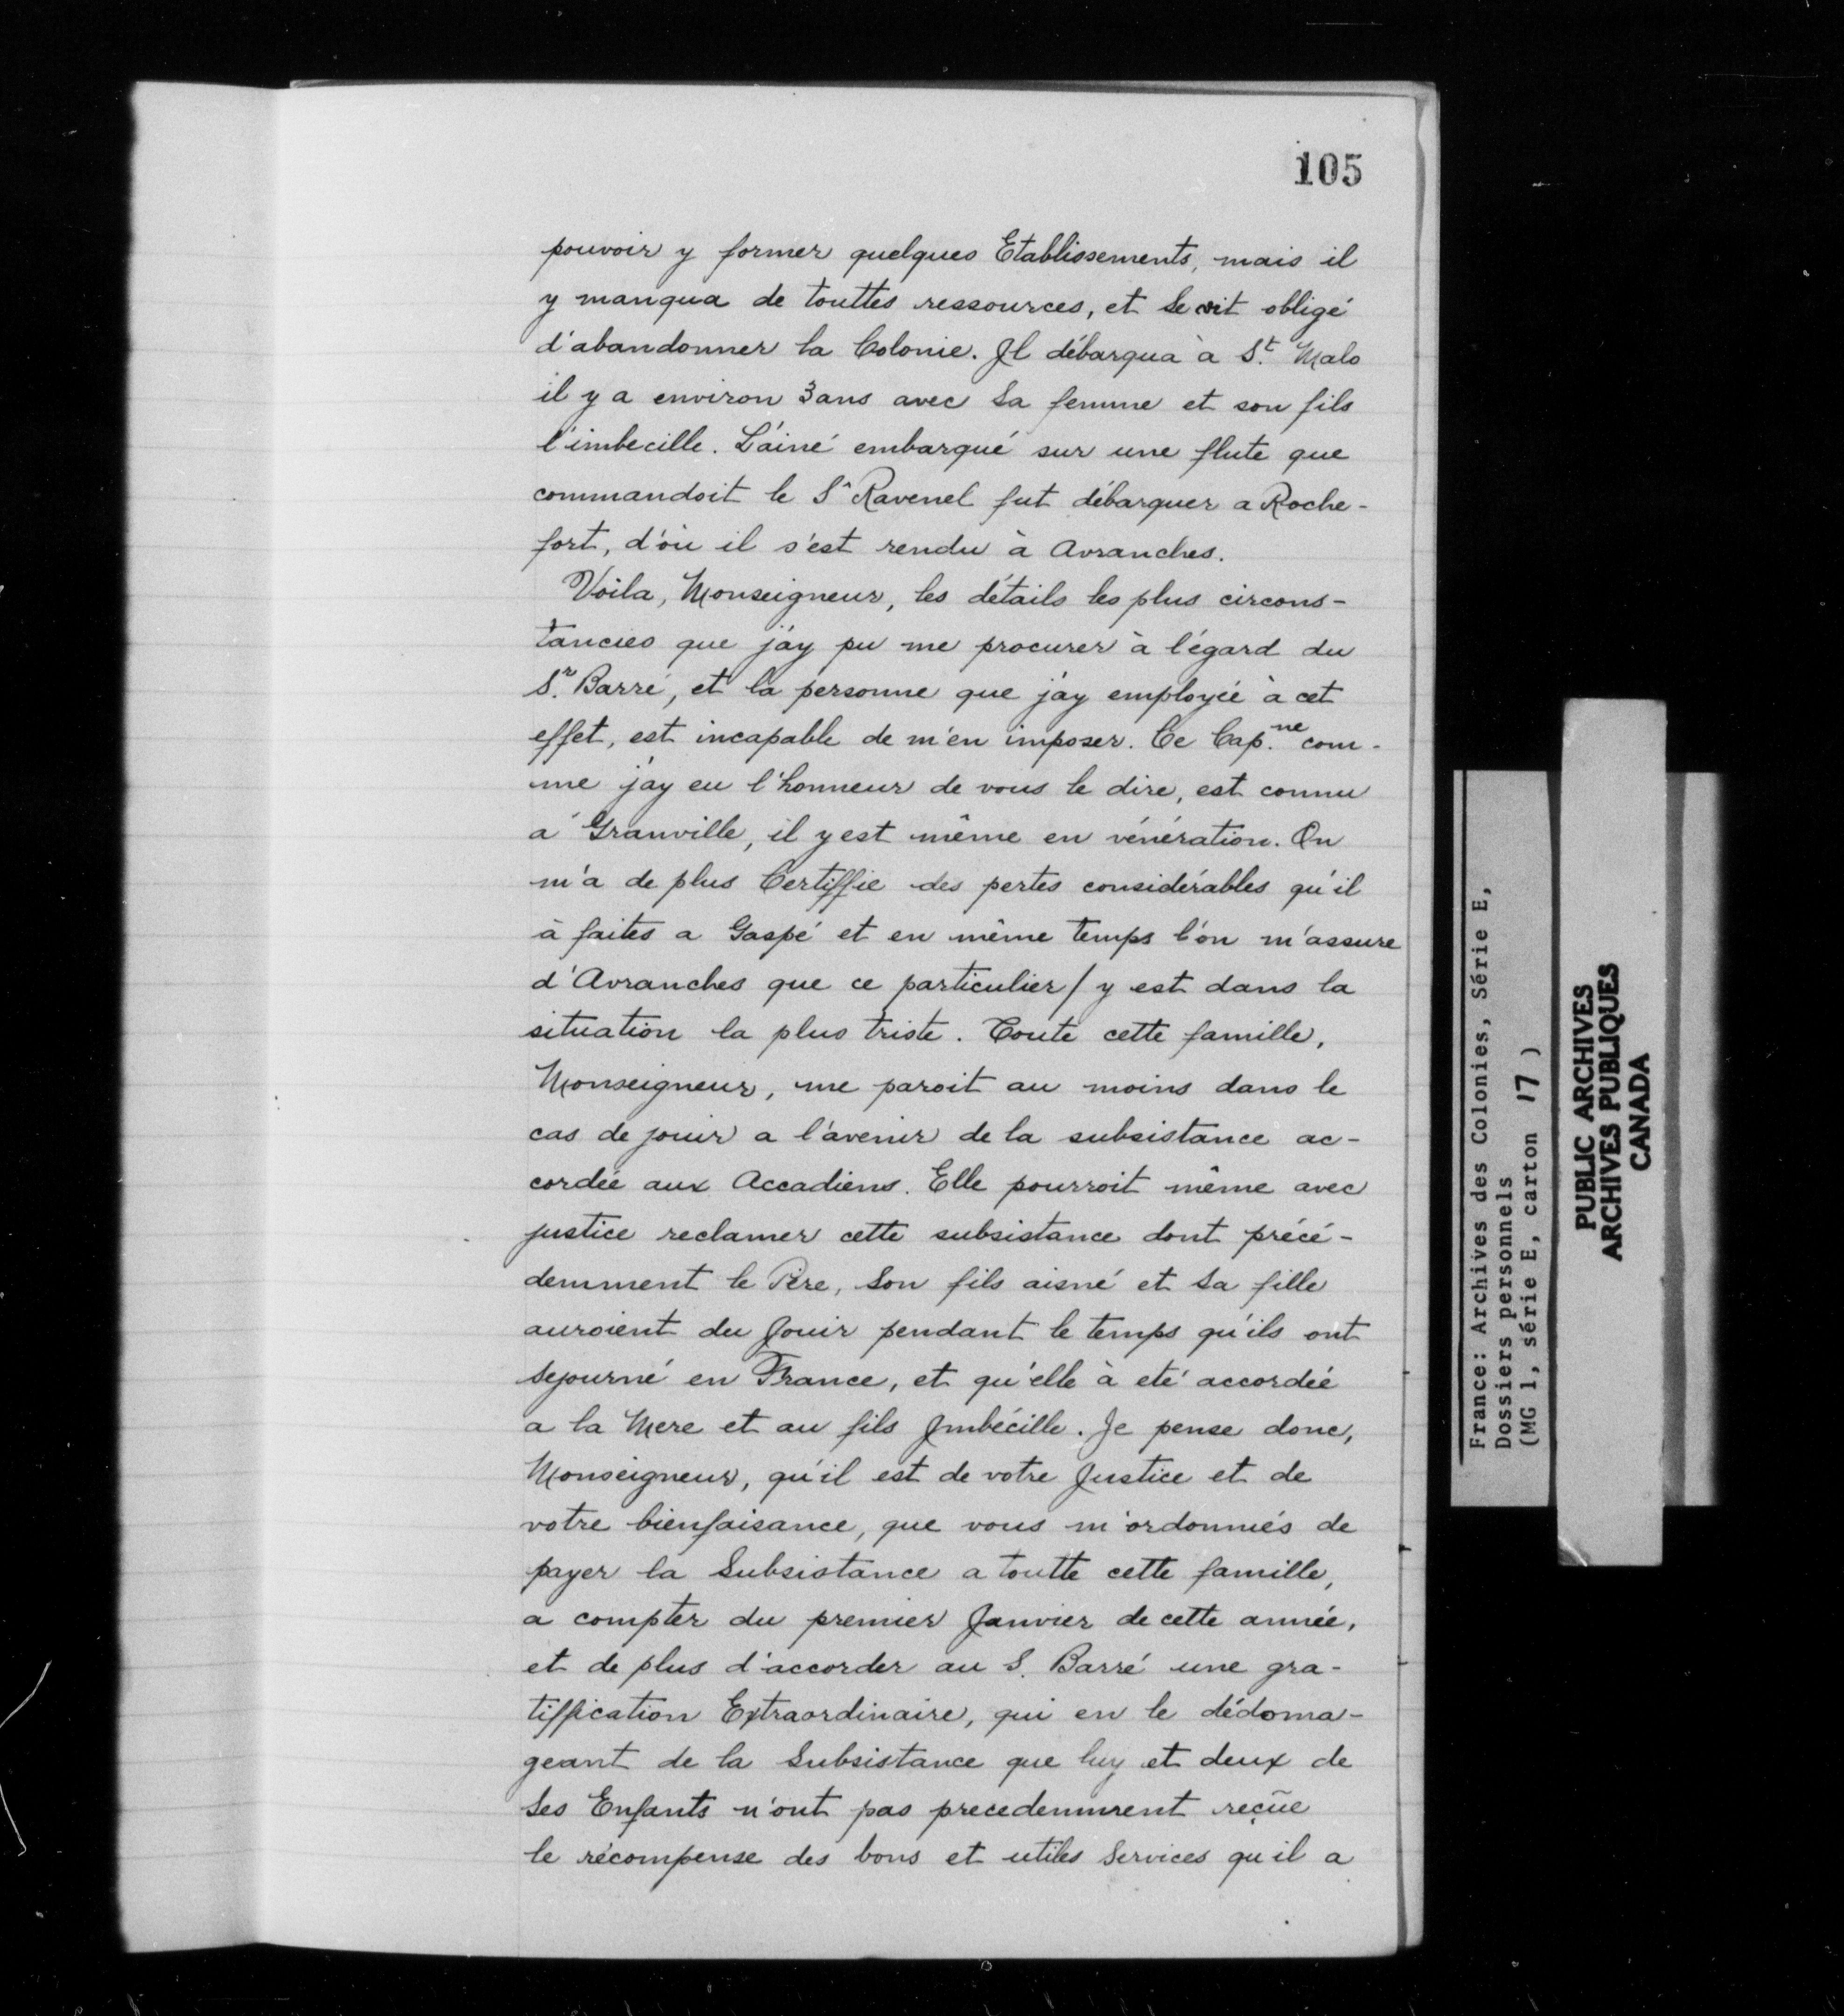 105
pouvoir y former quelques Etablissements, mais il
y manqua de touttes ressources, et se vit obligé
d'abandonner la Colonie. Il débarqua à S.t Malo
il y a environ 3 ans avec sa femme et son fils
l'imbecille. L'ainé embarqué sur une flute que
commandoit le Sr Ravenel fut débarquer a Roche-
fort, d'où il s'est rendu à Avranches.
Voila, Monseigneur, les détails les plus circons-
tancies que j'ay pu me procurer à l'égard du
S.r Barré, et la personne que j'ay employée à cet
effet, est incapable de m'en imposer. Ce Cap.ne com-
me j'ay eu l'honneur de vous le dire, est connu
a Granville, il y est même en vénération. On
m'a de plus Certiffie des pertes considérables qu'il
à faites a Gaspé et en même temps l'on m'assure
d'Avranches que ce particulier / y est dans la
situation la plus triste. Toute cette famille,
Monseigneur, me paroit au moins dans le
cas de jouir a l'avenir de la subsistance ac-
cordée aux Accadiens. Elle pourroit même avec
justice reclamer cette subsistance dont précé-
demment le Père, son fils aisné et sa fille
auroient du Jouir pendant le temps qu'ils ont
sejourné en France, et qu'elle à eté accordée
a la Mere et au fils Imbécille. Je pense donc,
Monseigneur, qu'il est de votre Justice et de
votre bienfaisance, que vous m'ordonniés de
payer la Subsistance a toutte cette famille,
a compter du premier Janvier de cette année,
et de plus d'accorder au S. Barré une gra-
tiffication Extraordinaire, qui en le dédoma-
geant de la Subsistance que luy et deux de
ses Enfants n'ont pas precedemment reçüe
le récompense des bons et utiles Services qu'il a
France: Archives des Colonies, Série E,
Dossiers personnels
(MG 1, série E, carton 17 )
PUBLIC ARCHIVES
ARCHIVES PUBLIQUES
CANADA